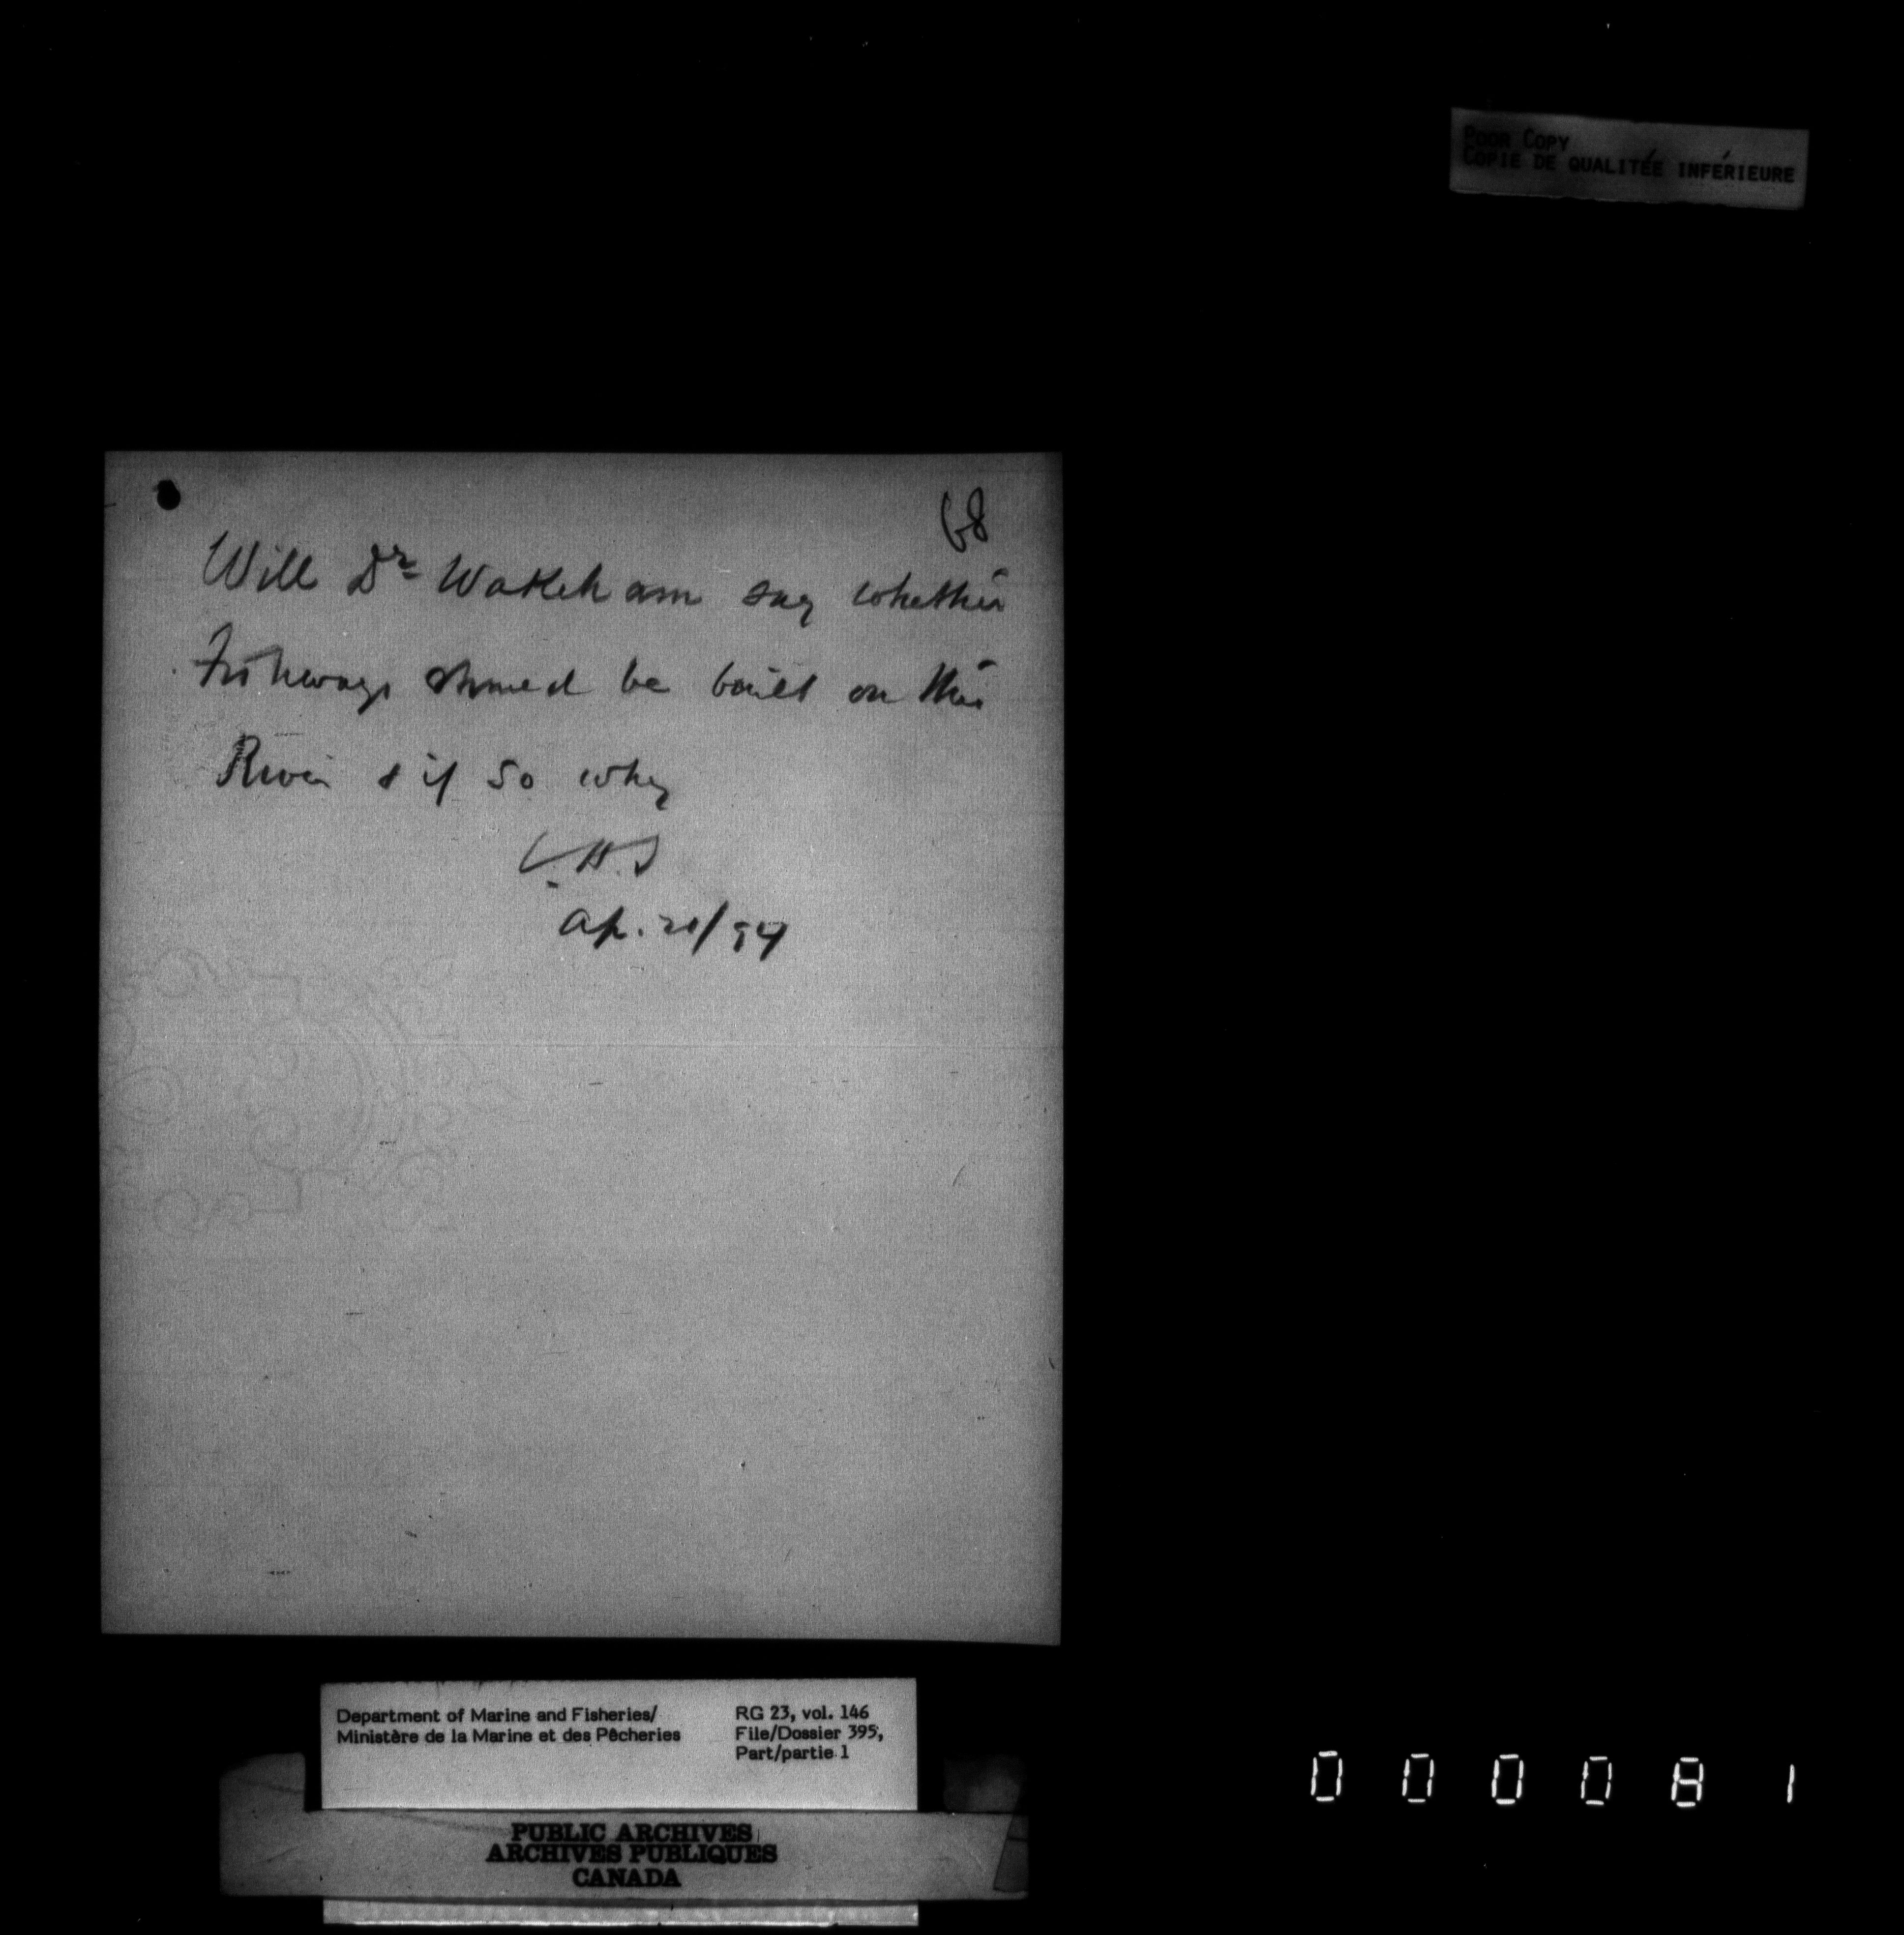 POOR COPY
COPIE DE QUALITÉE INFÉRIEURE
68
Will Dr Wakeham say whether
Fishways should be built on this
River & if so why
C.H.T
Ap. 21/94
Department of Marine and Fisheries/
Ministère de la Marine et des Pêcheries
RG 23, vol. 146
File/Dossier 395,
Part/partie 1
PUBLIC ARCHIVES
ARCHIVES PUBLIQUES
CANADA
000081